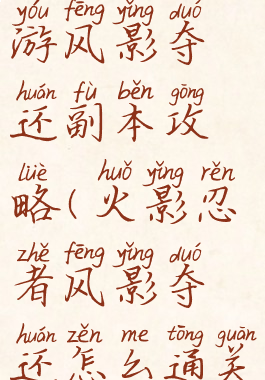 yóu fēng yǐng duó
游风影夺
huán fù běn gōng
还副本攻
lüè huǒ yǐng rěn
略(火影忍
zhě fēng yǐng duó
者风影夺
huán zěn me tōng guān
还怎么通关